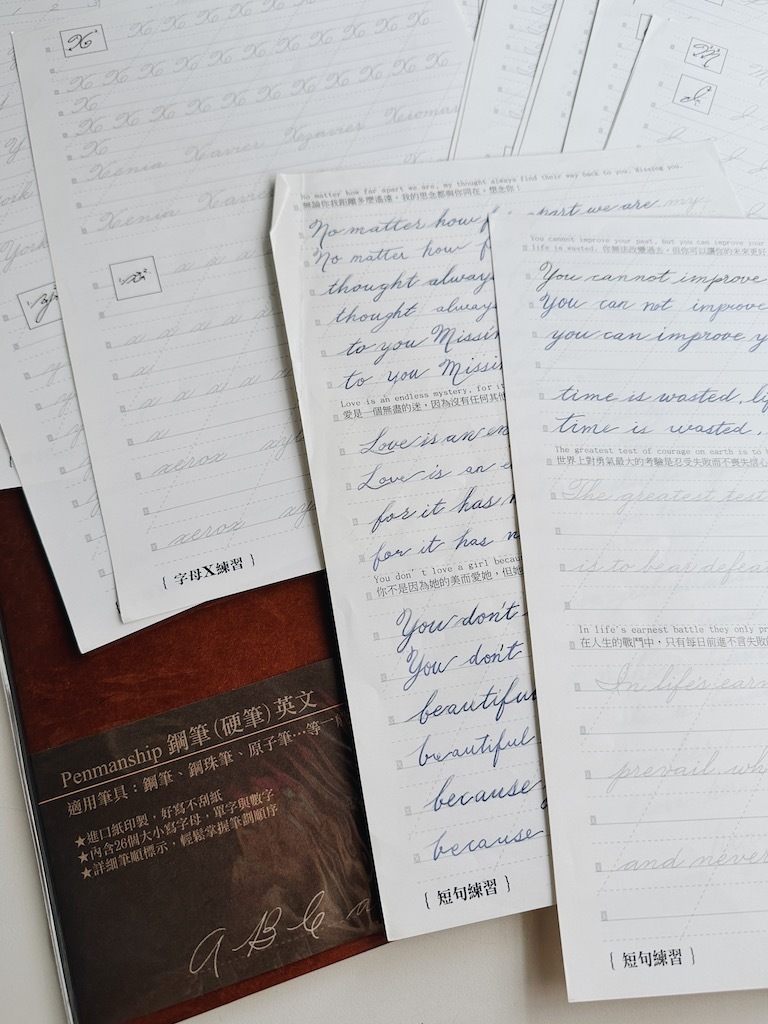 X
X X X X X X X X
X X X X X X X X X X
X
X X X X X X X X X X
X
Xenia Xavier Xzavier Xiomar
Xenia Xavier Xzavier
x
x x x x x
x x x x x
x x x x x
x
x
xerox
xerox
{ 字母X練習 }
York
y
No matter how far apart we are, my thought always find their way back to you. Missing you.
無論你我距離多麼遙遠，我的思念都與你同在，想念你！
No matter how apart we are my
No matter how
thought always
thought always
to you Missin
to you Missin
Love is an endless mystery, for it
愛是一個無盡的迷，因為沒有任何其他
Love is an en
Love is an e
for it has
for it has n
You don't love a girl becau
你不是因為她的美而愛她，但她
You don't
You don't
beautiful
beautiful
because
because
{ 短句練習 }
You cannot improve your past, but you can improve your
life is wasted. 你無法改變過去，但你可以讓你的未來更好
You cannot improve
You can not improve
you can improve y
time is wasted, lif
time is wasted,
The greatest test of courage on earth is to b
世界上對勇氣最大的考驗是忍受失敗而不喪失信心
The greatest test
is to bear defea
In life's earnest battle they only pr
在人生的戰鬥中，只有每日前進不言失敗
In life's earn
prevail, wh
and never
{ 短句練習 }
Penmanship 鋼筆(硬筆)英文
適用筆具：鋼筆、鋼珠筆、原子筆…等一般
★進口紙印製，好寫不刮紙
★內含26個大小寫字母，單字與數字
★詳細筆順標示，輕鬆掌握筆劃順序
A B C